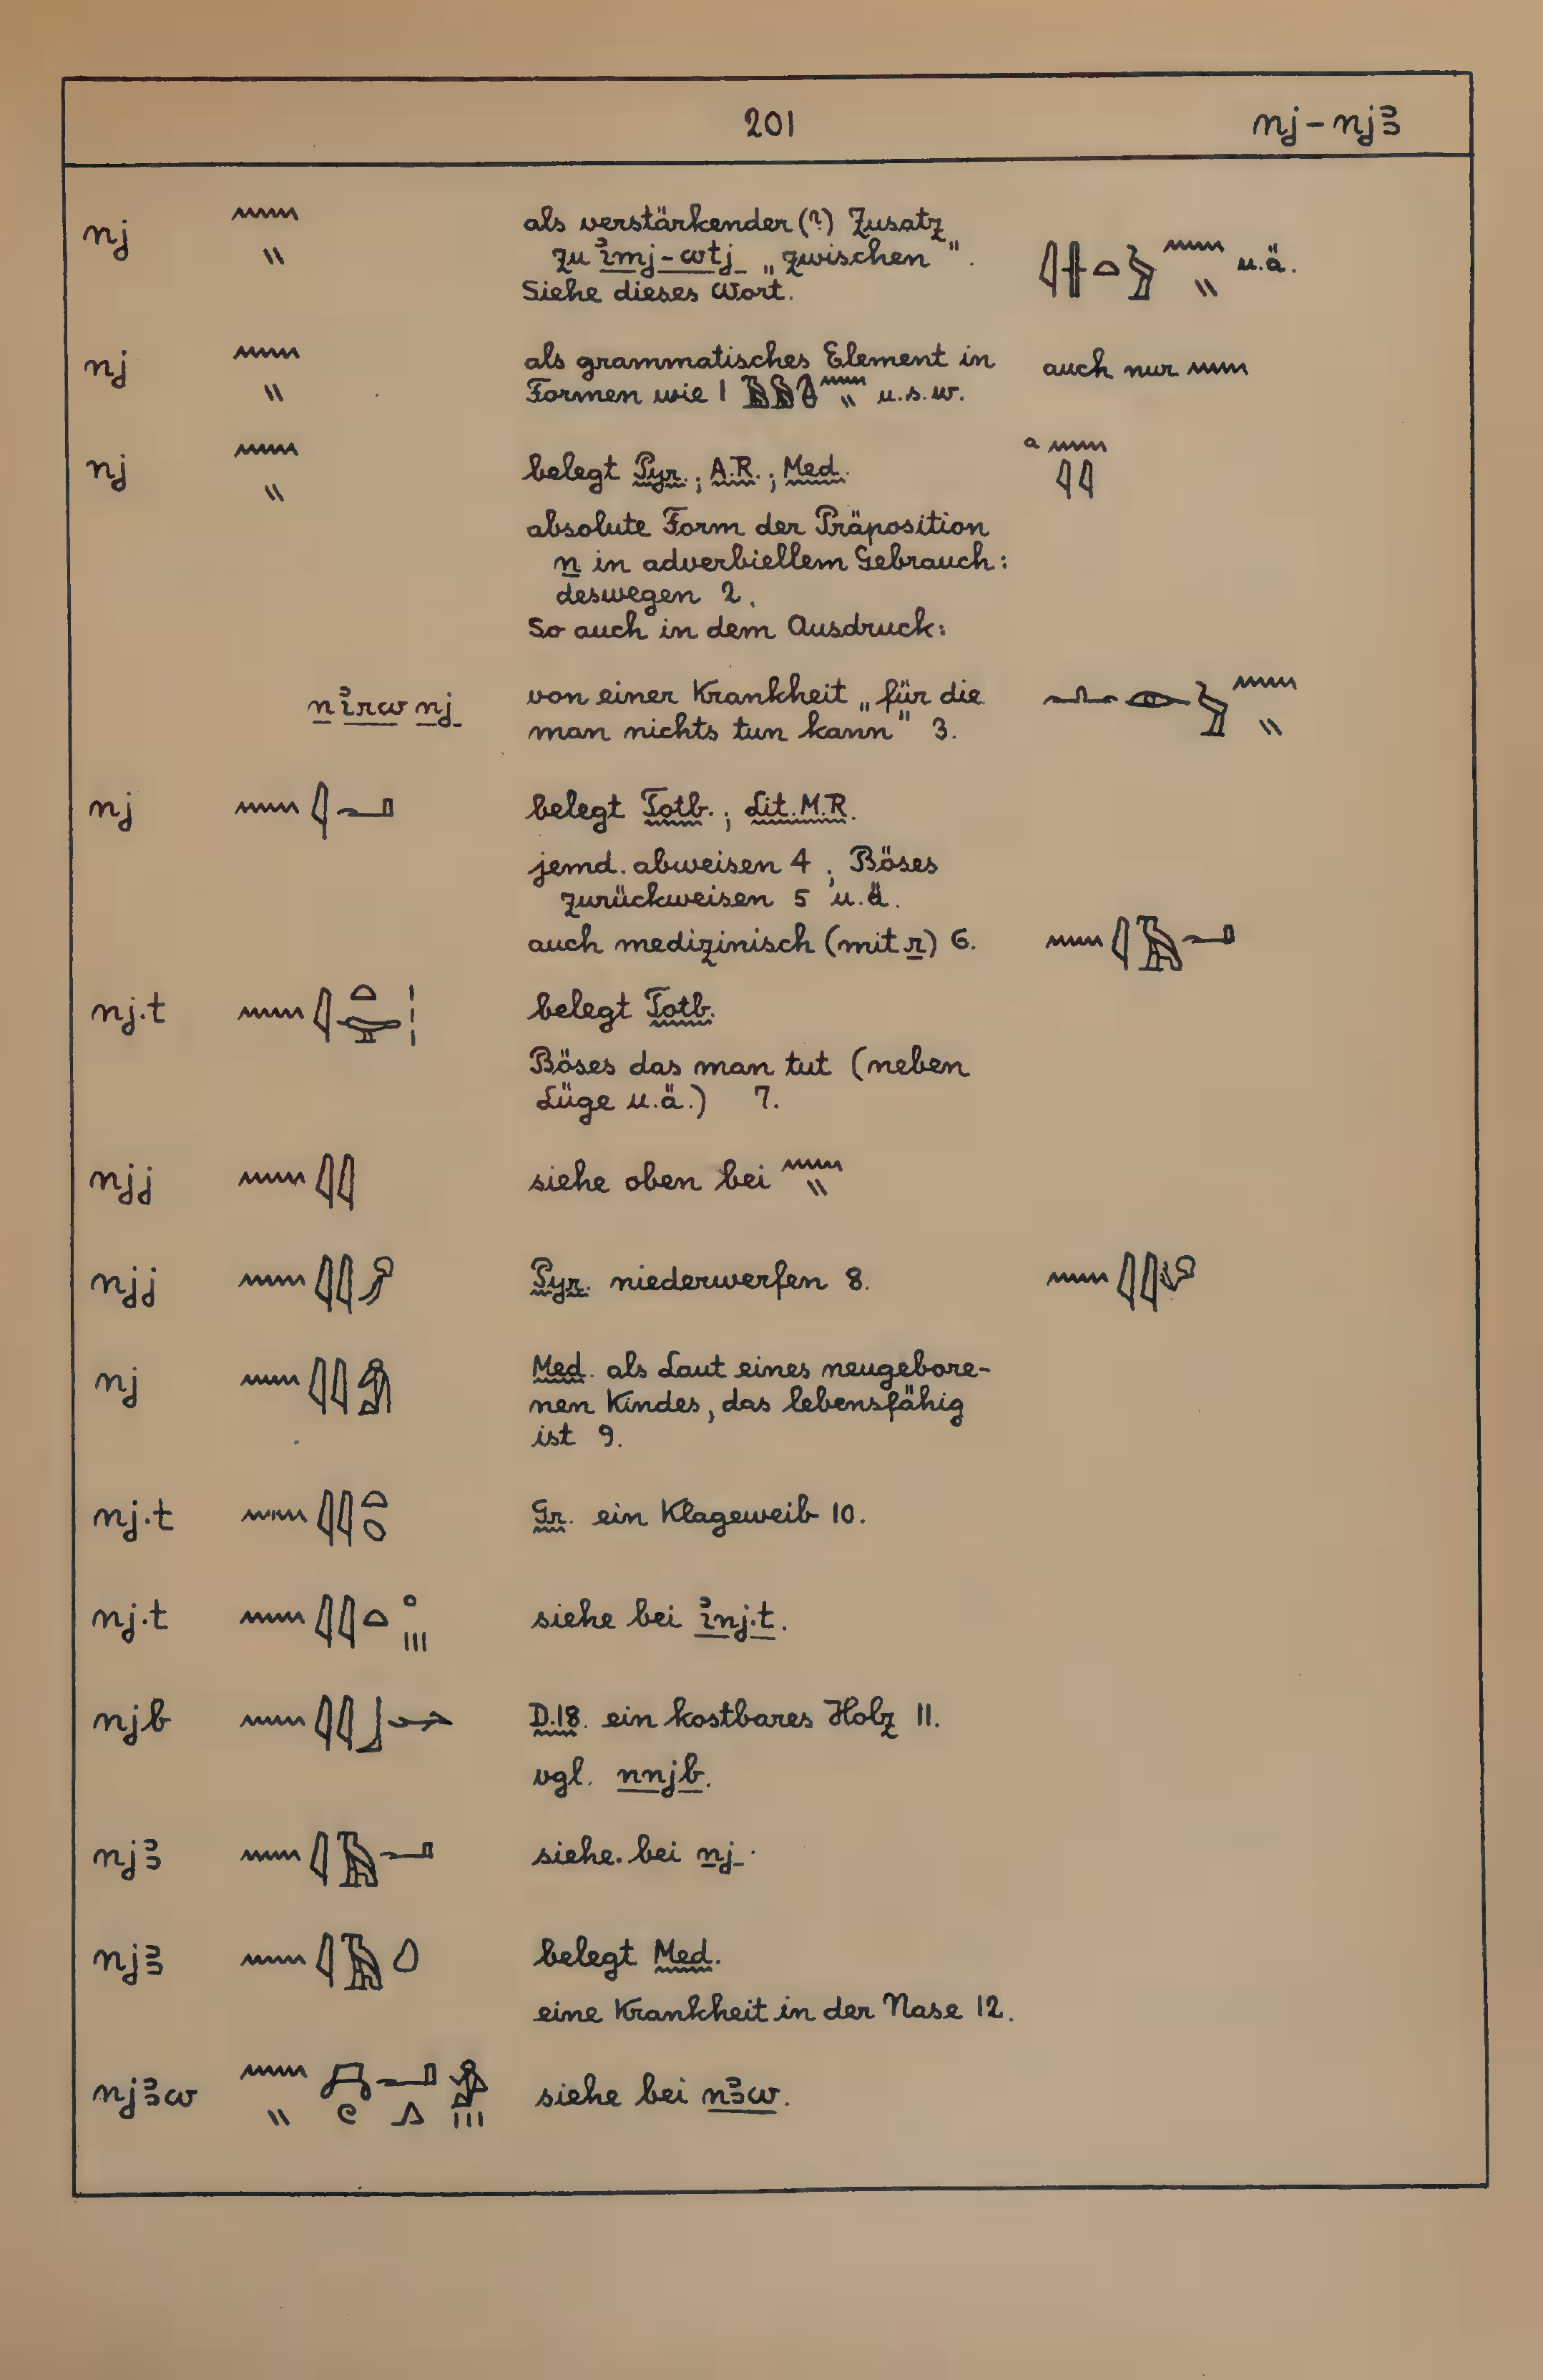 201 nj – njꜣ
nj 𓈖𓏭 als verstärkender (?) Zusatz
zu i͗mj-wtj „zwischen“. 𓇋𓏶𓏏𓅱𓈖𓏭 u.ä.
Siehe dieses Wort.
nj 𓈖𓏭 als grammatisches Element in auch nur 𓈖
Formen wie 1 𓈖𓏭 u.s.w.
nj 𓈖𓏭 belegt Pyr.; A.R.; Med. a 𓈖𓇋𓇋
absolute Form der Präposition
n in adverbiellem Gebrauch:
deswegen 2.
So auch in dem Ausdruck:
n i͗rw nj von einer Krankheit „für die 𓂜𓁹𓅱𓈖𓏭
man nichts tun kann“ 3.
nj 𓈖𓇋𓂝 belegt Totb.; Lit. M.R.
jemd. abweisen 4; Böses
zurückweisen 5 u.ä.
auch medizinisch (mit r) 6. 𓈖𓇋𓄿𓂝
nj.t 𓈖𓇋𓏏𓅪𓏥 belegt Totb.
Böses das man tut (neben
Lüge u.ä.) 7.
njj 𓈖𓇋𓇋 siehe oben bei 𓈖𓏭
njj 𓈖𓇋𓇋 Pyr. niederwerfen 8. 𓈖𓇋𓇋
nj 𓈖𓇋𓇋𓀁 Med. als Laut eines neugebore-
nen Kindes, das lebensfähig
ist 9.
nj.t 𓈖𓇋𓇋𓏏𓆇 Gr. ein Klageweib 10.
nj.t 𓈖𓇋𓇋𓏏𓈒𓏥 siehe bei i͗nj.t.
njb 𓈖𓇋𓇋𓃀𓆱 D.18. ein kostbares Holz 11.
vgl. nnjb.
njꜣ 𓈖𓇋𓄿𓂝 siehe bei nj.
njꜣ 𓈖𓇋𓄿 belegt Med.
eine Krankheit in der Nase 12.
njꜣw 𓈖𓏭 siehe bei nꜣw.